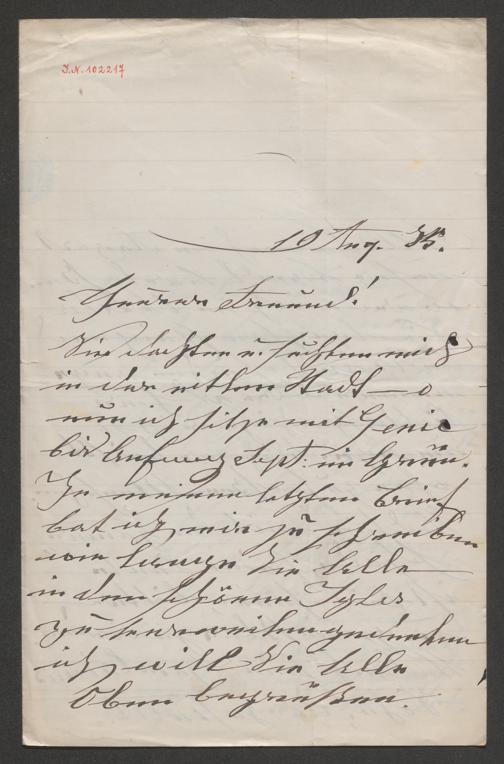 J.N. 102217
19 Aug. 85.
Theurer Freund!
Sie dachten u. suchten mich
in der alten Stadt – o
nun ich sitze mit Genie
bis Anfang Sept. im Grün.
In meinem letzten Brief
bat ich mir zu schreiben
wie lange Sie Alle
in dem schönen Igls
zu verweilen gedenken
ich will Sie Alle
Oben begrüßen.